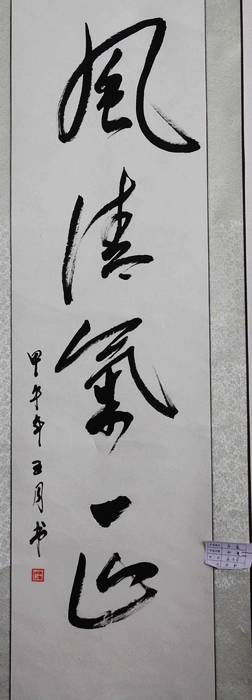 風清氣正
甲午年五月书